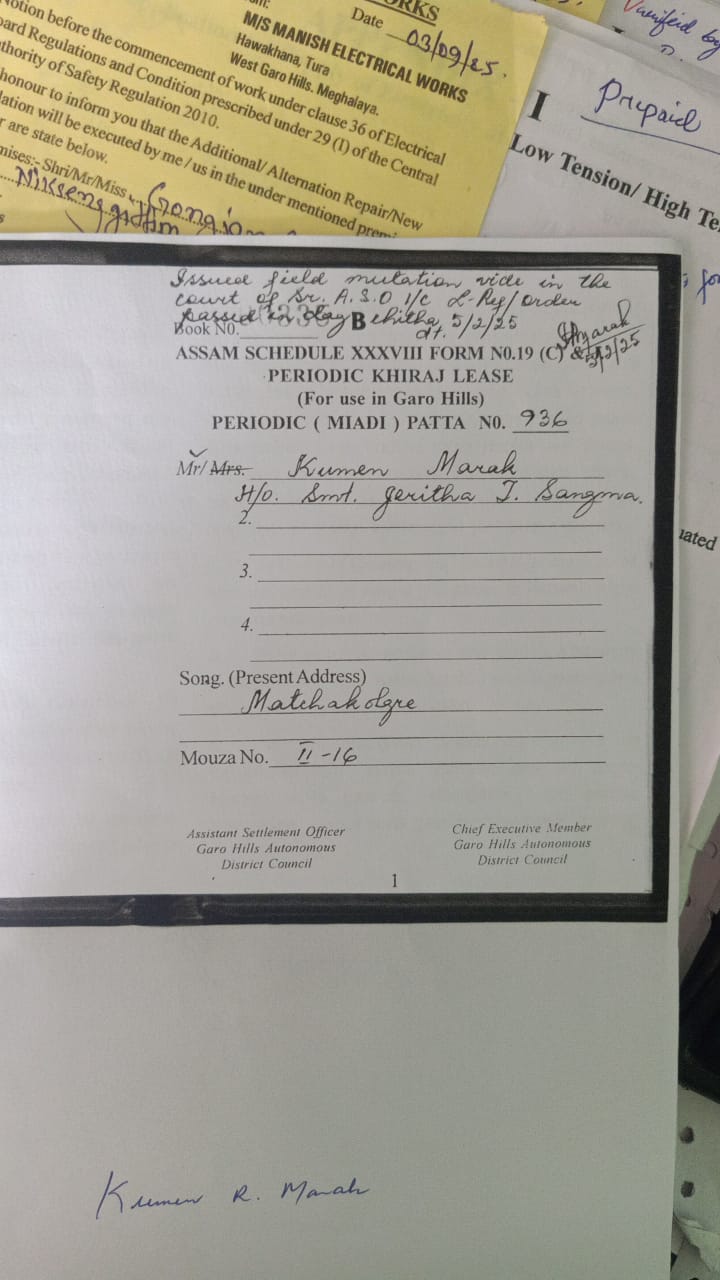 ORKS
Date 03/09/25.
M/S MANISH ELECTRICAL WORKS
Hawakhana, Tura
West Garo Hills. Meghalaya.
before the commencement of work under clause 36 of Electrical
Regulations and Condition prescribed under 29 (I) of the Central
of Safety Regulation 2010.
honour to inform you that the Additional/ Alternation Repair/New
will be executed by me / us in the under mentioned
are state below.
Shri/Mr/Miss
by
Prepaid
I
Low Tension/ High
Issued field mutation vide in the
court of Sr. A.S.O I/c L-Reg/order
passed in day
dt. 5/2/25
Book No. B
5/2/25
ASSAM SCHEDULE XXXVIII FORM N0.19 (C) &
PERIODIC KHIRAJ LEASE
(For use in Garo Hills)
PERIODIC ( MIADI ) PATTA N0. 936
Mr/ Mrs. Kumen Marak
H/o. Smt. Jeritha T. Sangma.
2.
3.
4.
Song. (Present Address)
Matchakolgre
Mouza No. II-16
Assistant Settlement Officer
Garo Hills Autonomous
District Council
Chief Executive Member
Garo Hills Autonomous
District Council
1
Kumen R. Marak